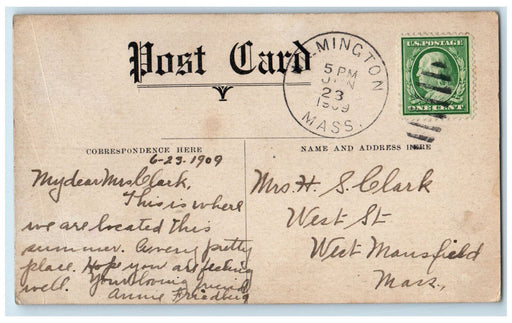 Post Card
WILMINGTON
5 PM
JUN
23
1909
MASS.
U.S. POSTAGE
ONE CENT
CORRESPONDENCE HERE
NAME AND ADDRESS HERE
6-23-1909
My dear Mrs Clark,
This is where
we are located this
summer. A very pretty
place. Hope you are feeling
well. Your loving friend
Annie
Mrs. H. S. Clark
West St
West Mansfield
Mass.,